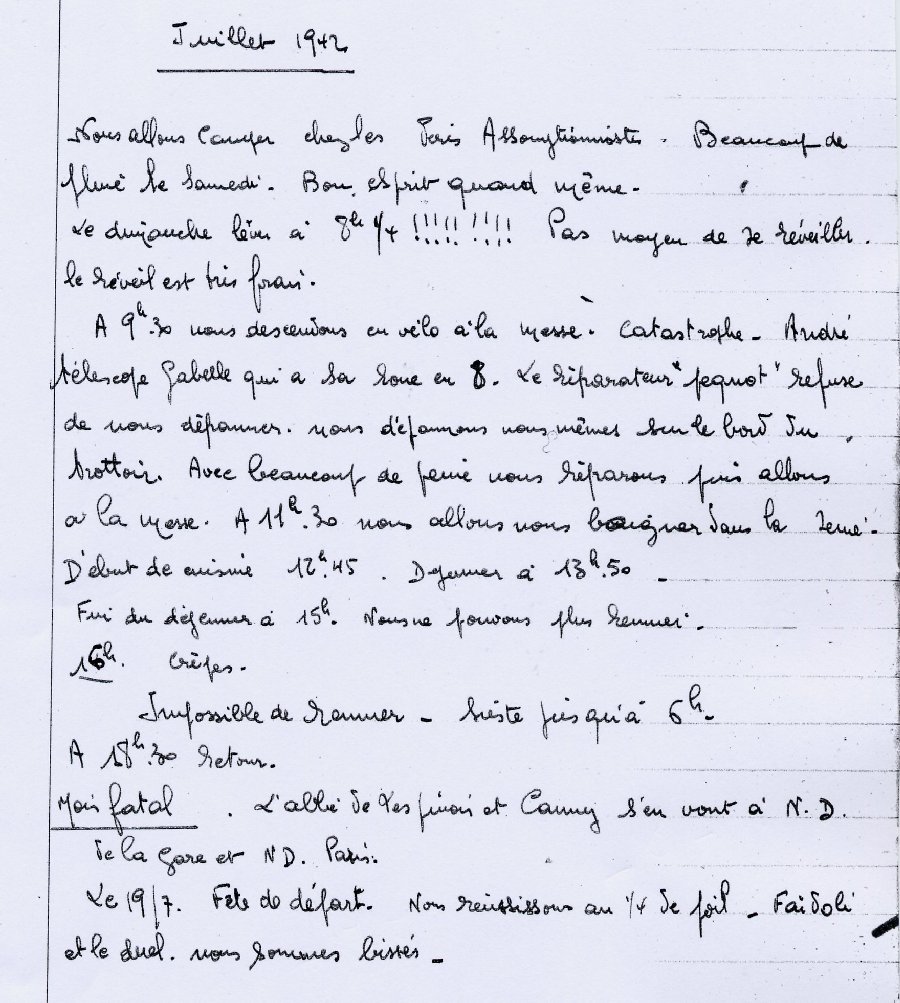 Juillet 1942
Nous allons camper chez les Pères Assomptionnistes. Beaucoup de
pluie le Samedi. Bon esprit quand même.
Le dimanche lever à 8h 1/4 !!!!! !!!!! Pas moyen de se réveiller.
le réveil est très frais.
A 9h.30 nous descendons en vélo à la messe. Catastrophe - André
télescope Gabelle qui a sa roue en 8. Le réparateur "pequot" refuse
de nous dépanner. nous dépannons nous mêmes sur le bord du
trottoir. Avec beaucoup de peine nous réparons puis allons
à la messe. A 11h.30 nous allons nous baigner dans la
Début de cuisine 12h.45. Dejeuner à 13h.50 -
Fin du déjeuner à 15h. Nous ne pouvons plus remuer -
16h. Crêpes -
Impossible de remuer - Sieste jusqu'à 6h -
A 18h.30 retour.
Mois fatal. L'abbé de et s'en vont à N.D.
de la Gare et N.D. Paris.
Le 19/7. Fête de départ. Nous réussissons au 1/4 de poil - Faidoli
et le duel. nous sommes bissés -